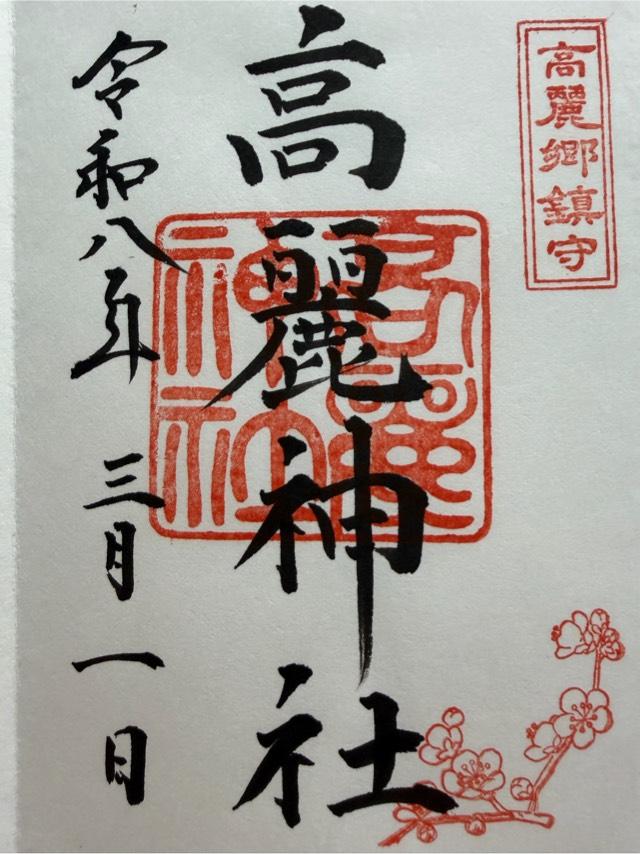 高麗郷鎮守
高麗神社
令和八年 三月一日